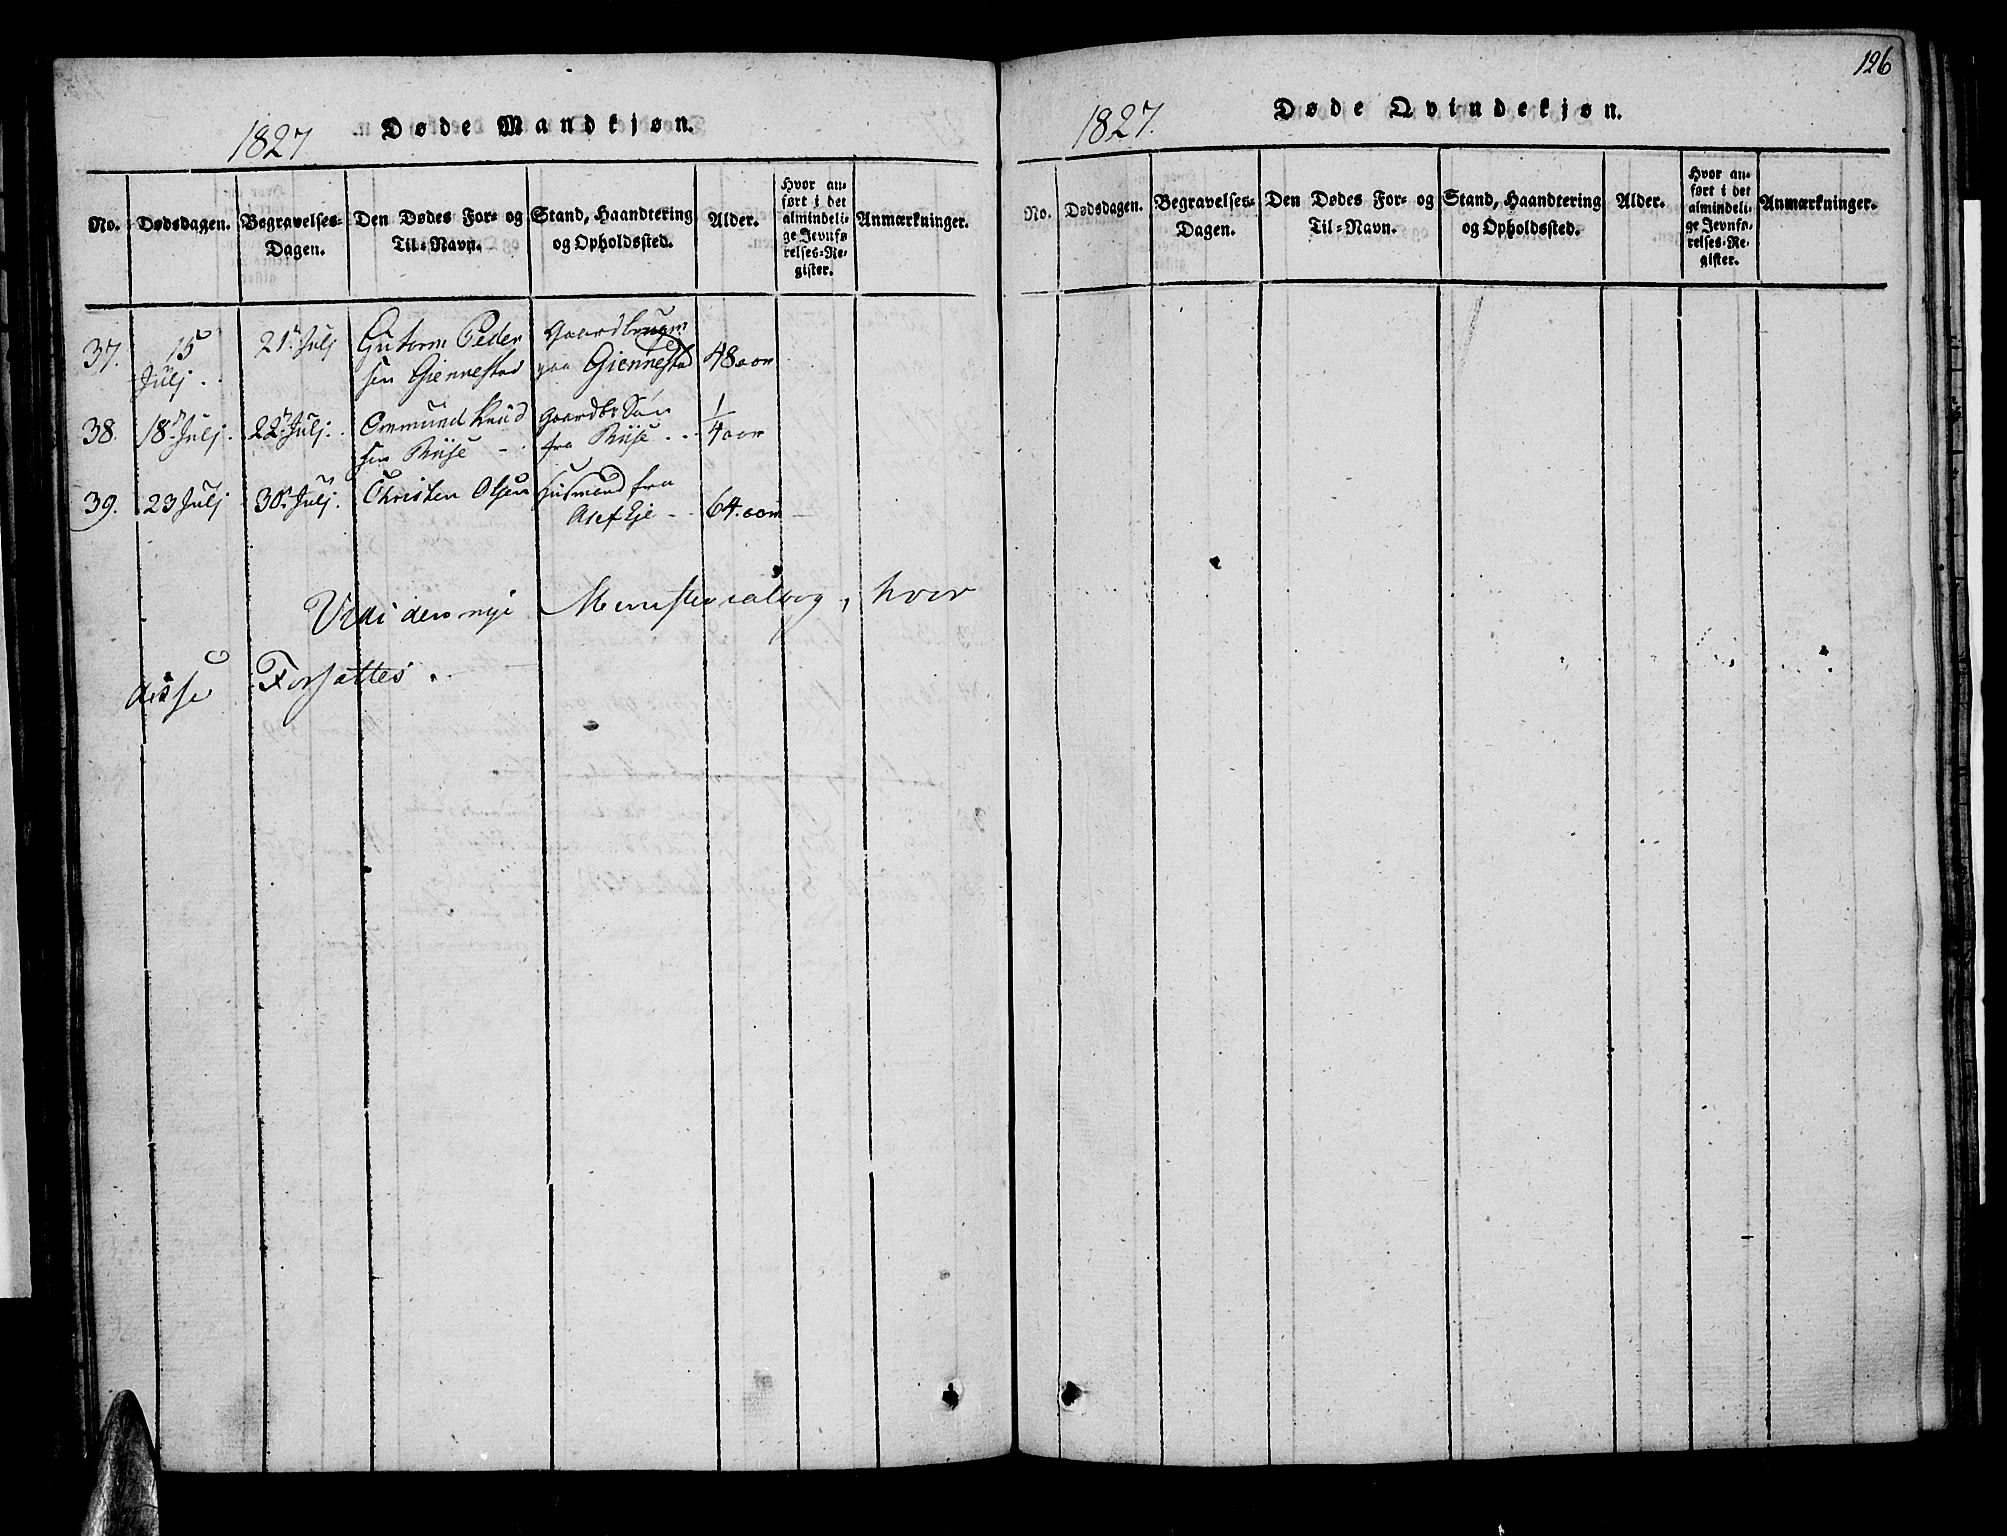 1827
Døde Mandkjøn.
No.
Dødsdagen.
Begravelses-
Dagen.
Den Dødes For- og
Til-Navn.
Stand, Haandtering
og Opholdssted.
Alder.
Hvor an-
ført i det
almindeli-
ge Jevnfø-
relses-Re-
gister.
Anmærkninger.
37.
15
Julj
21 Julj
Gutorm Peder
sen Giennestad
Gaardbrugr
paa Giennestad
48 aar
38.
18 Julj.
22 Julj.
Ommund Knud
sen Riise
Gaardbr Søn
fra Riise
1/4 aar
39.
23 Julj
30 Julj.
Christen Olsen
Husmand fra
Eje
64 aar
Vidi den nye Ministerialbog, hvor
disse Forsattes.
126
1827.
Døde Qvindekjøn.
No.
Dødsdagen.
Begravelses-
Dagen.
Den Dødes For- og
Til-Navn.
Stand, Haandtering
og Opholdssted.
Alder.
Hvor an-
ført i det
almindeli-
ge Jevnfø-
relses-Re-
gister.
Anmærkninger.